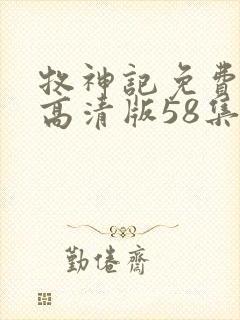 牧神記免費
高清版58集
勤倦齋